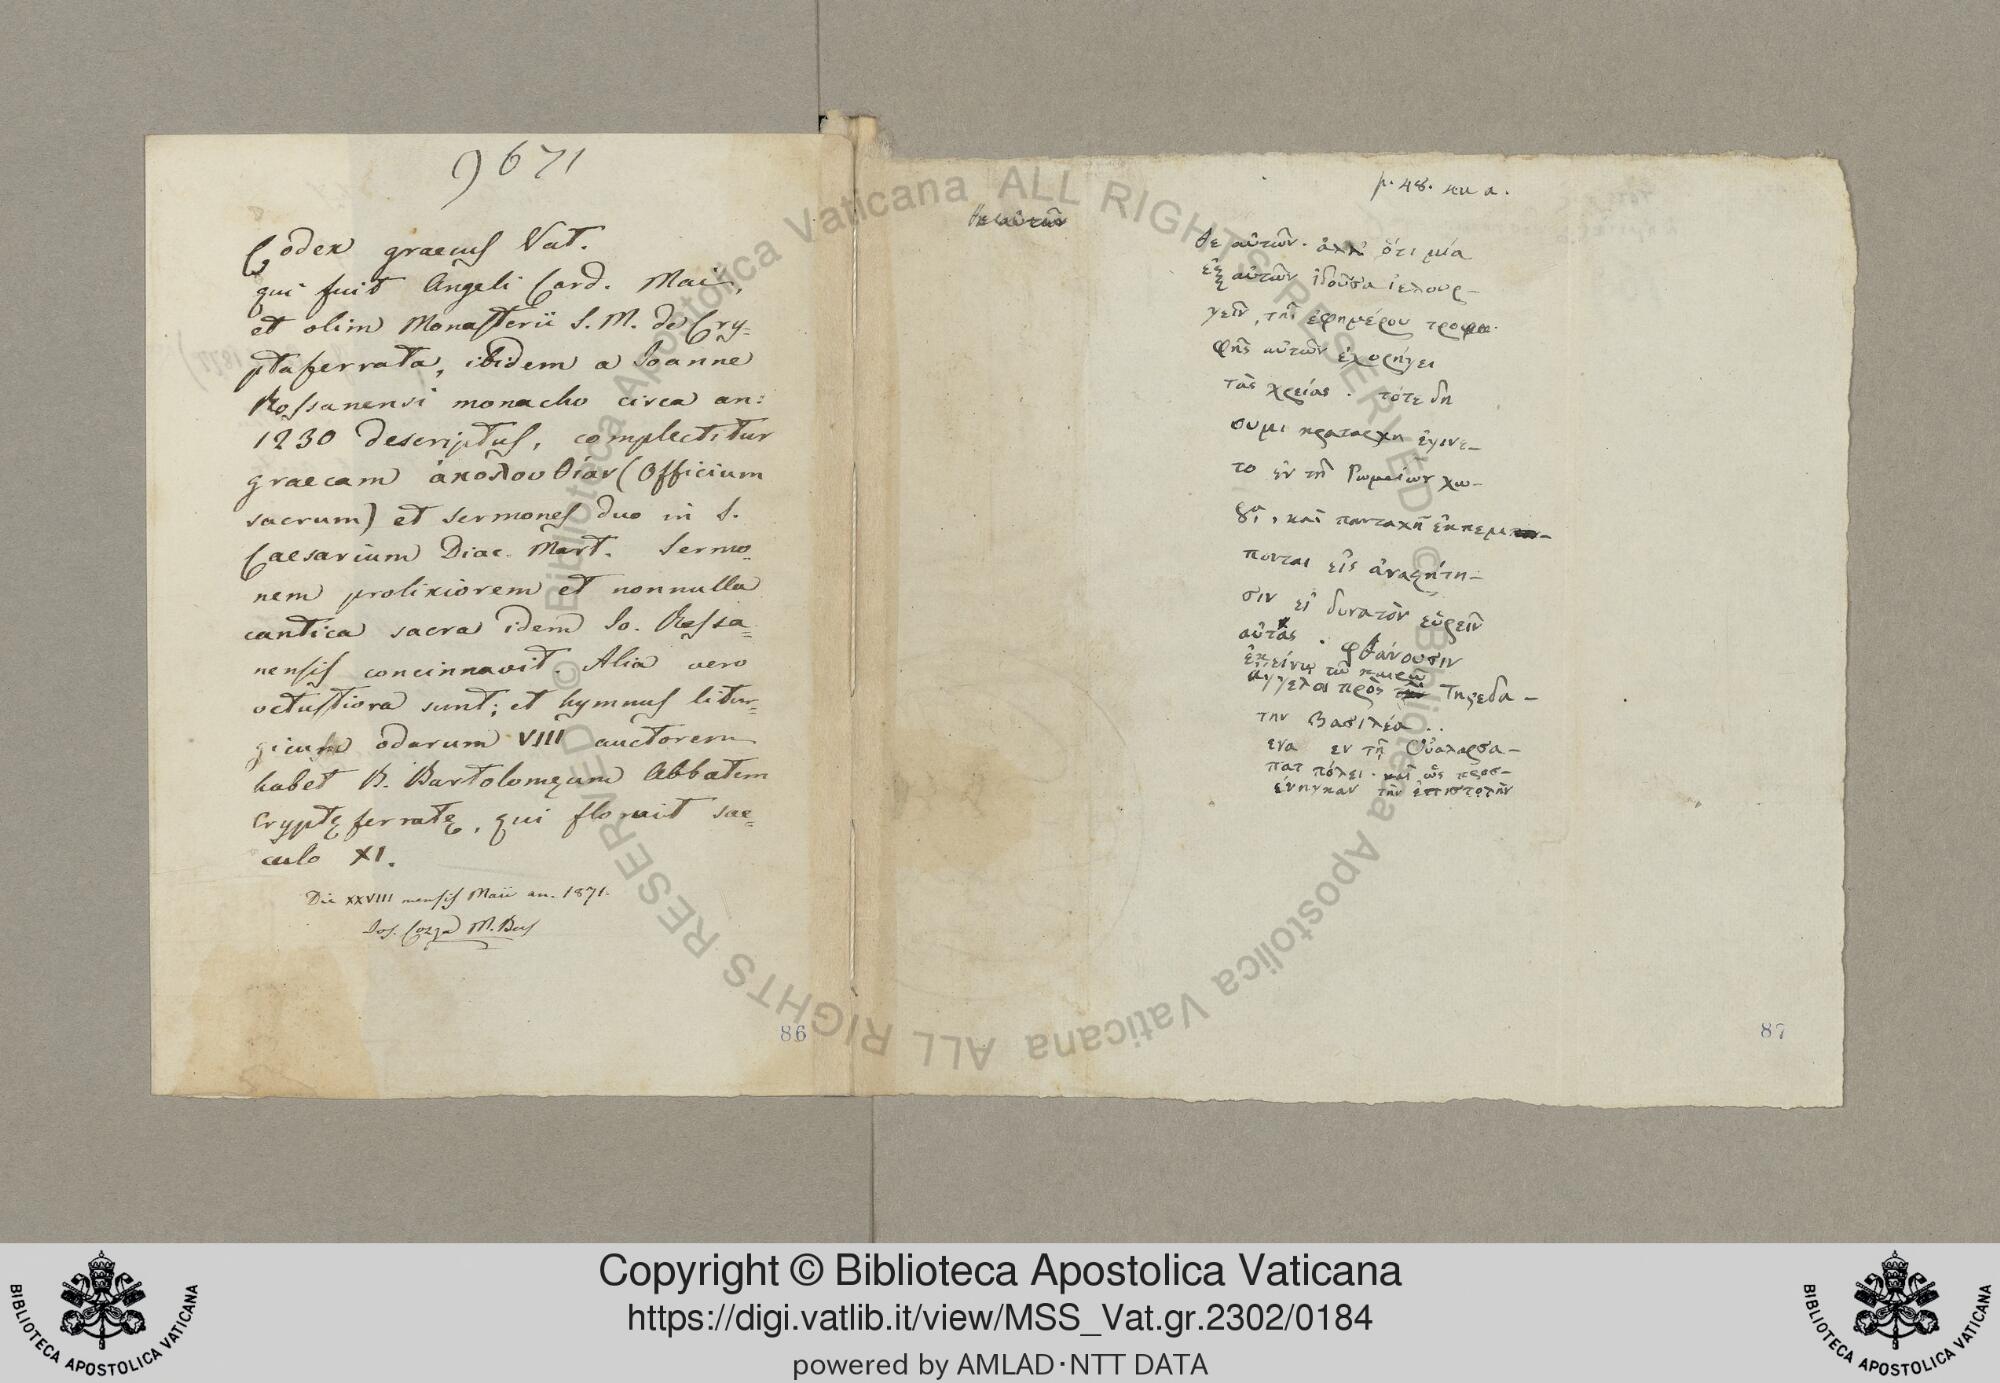 9671
Codex graecus Vat.
qui fuit Angeli Card. Maii,
et olim Monasterii S. M. de Cry-
ptaferrata, ibidem a Ioanne
Rossanensi monacho circa an:
1230 descriptus, complectitur
graecam ἀκολουθίαν (Officium
sacrum) et sermones duo in S.
Caesarium Diac. Mart. Sermo-
nem prolixiorem et nonnulla
cantica sacra idem Io. Rossa-
nensis concinnavit. Alia vero
vetustiora sunt; et hymnus litur-
gicum odarum VIII auctorem
habet B. Bartolomęum Abbatem
Cryptęferratę, qui floruit sae-
culo XI.
Die XXVIII mensis Maii an. 1871.
Ios. Cozza M. Bas
86
θε αὐτῶν
p. 48.
θε αὐτῶν. ἀλλ' ὅτι μία
ἐξ αὐτῶν ἰδοῦσα ὑελουρ-
γεῖν, τῆς ἐφημέρου τρο
φῆς αὐτῶν ἐχορήγει
τὰς χρείας. τότε δη
ἐγινε-
το ἐν τῇ Ρωμαίων χω-
ρᾳ, καὶ πανταχῆ ἐκπεμ-
πονται εἰς ἀναζήτη-
σιν εἰ δυνατὸν εὑρεῖν
αὐτάς. φθάνουσιν
ἐκείνῳ τῷ καιρῷ
ἄγγελοι πρὸς Τηρεδα-
την βασιλέα..
ενα εν τῇ Οὐαλαρσα-
πατ πόλει. καὶ ὡς προσ-
ένηγκαν τὴν ἐπιστολὴν
87
Biblioteca Apostolica Vaticana ALL RIGHTS RESERVED ©
Biblioteca Apostolica Vaticana ALL RIGHTS RESERVED ©
Copyright © Biblioteca Apostolica Vaticana
https://digi.vatlib.it/view/MSS_Vat.gr.2302/0184
powered by AMLAD·NTT DATA
BIBLIOTECA APOSTOLICA VATICANA
BIBLIOTECA APOSTOLICA VATICANA